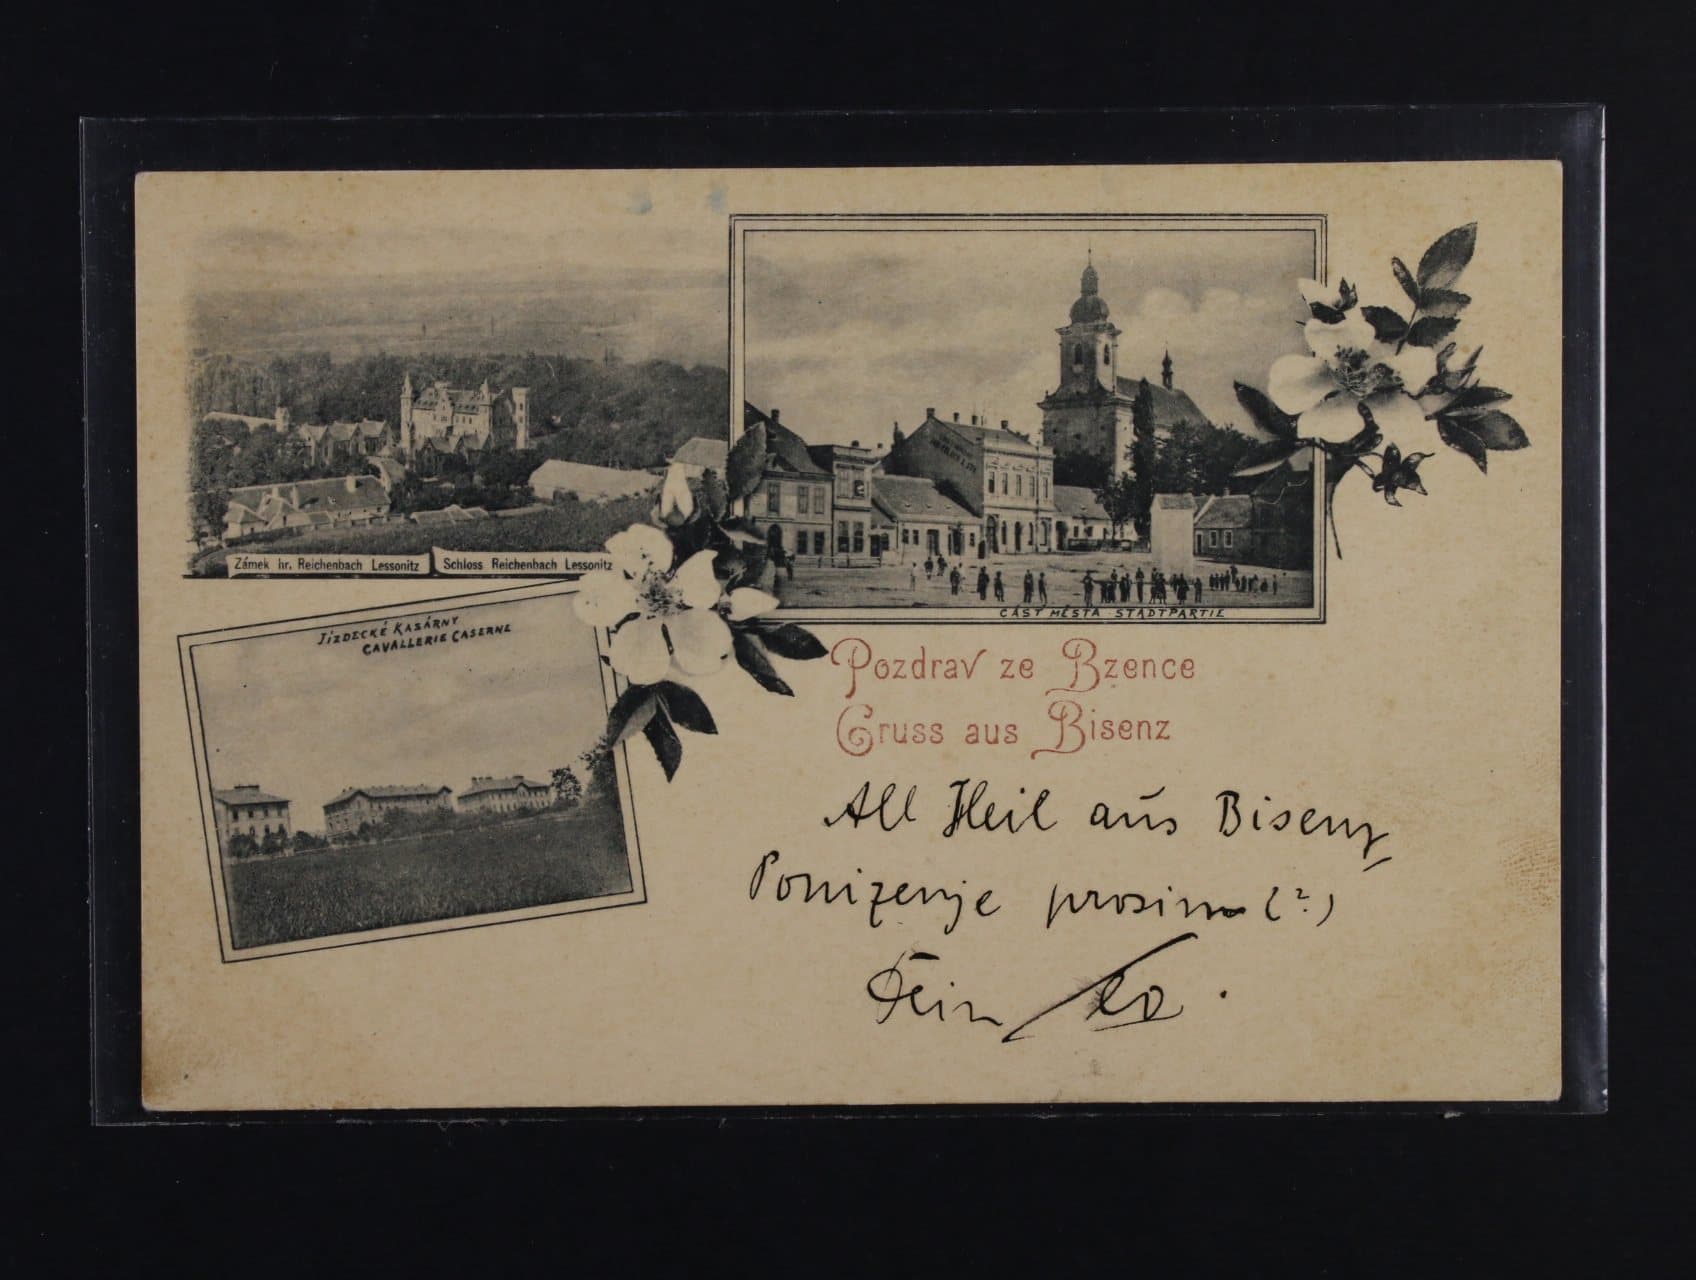 Zámek hr. Reichenbach Lessonitz
Schloss Reichenbach Lessonitz
ČÁSŤ MĚSTA STADTPARTIE
JÍZDECKÉ KASÁRNY
CAVALLERIE CASERNE
Pozdrav ze Bzence
Gruss aus Bisenz
All Heil aus Bisenz
Ponizenje prosim (?)